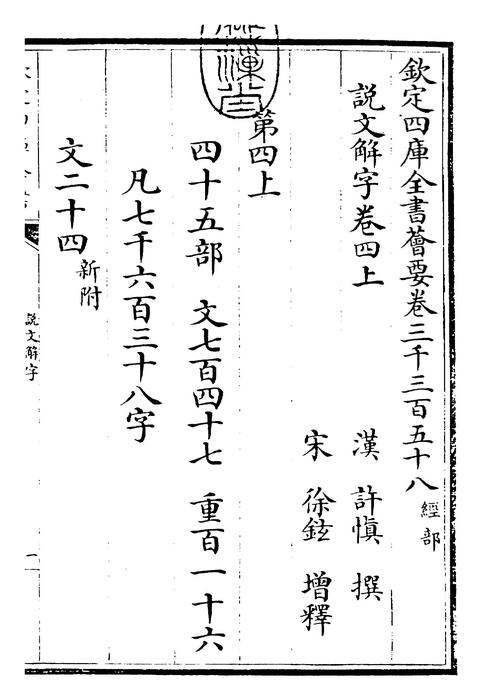 欽定四庫全書薈要卷三千三百五十八 經部
説文解字卷四上
漢 許慎 撰
宋 徐鉉 增釋
第四上
四十五部 文七百四十七 重百一十六
凡七千六百三十八字
文二十四 新附
説文解字
一